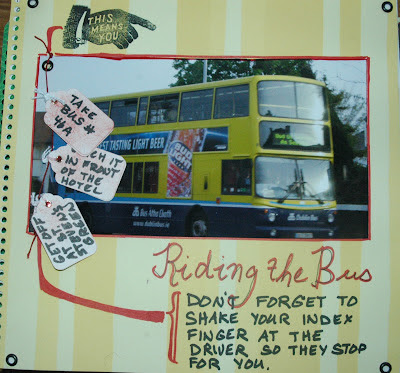 THIS
MEANS
YOU
TAKE
BUS #
46A
CATCH IT
IN FRONT
OF THE
HOTEL
TASTING LIGHT BEER
Bus Átha Cliath
www.dublinbus.ie
Dublin Bus
Riding the Bus
DON'T FORGET TO
SHAKE YOUR INDEX
FINGER AT THE
DRIVER SO THEY STOP
FOR YOU.